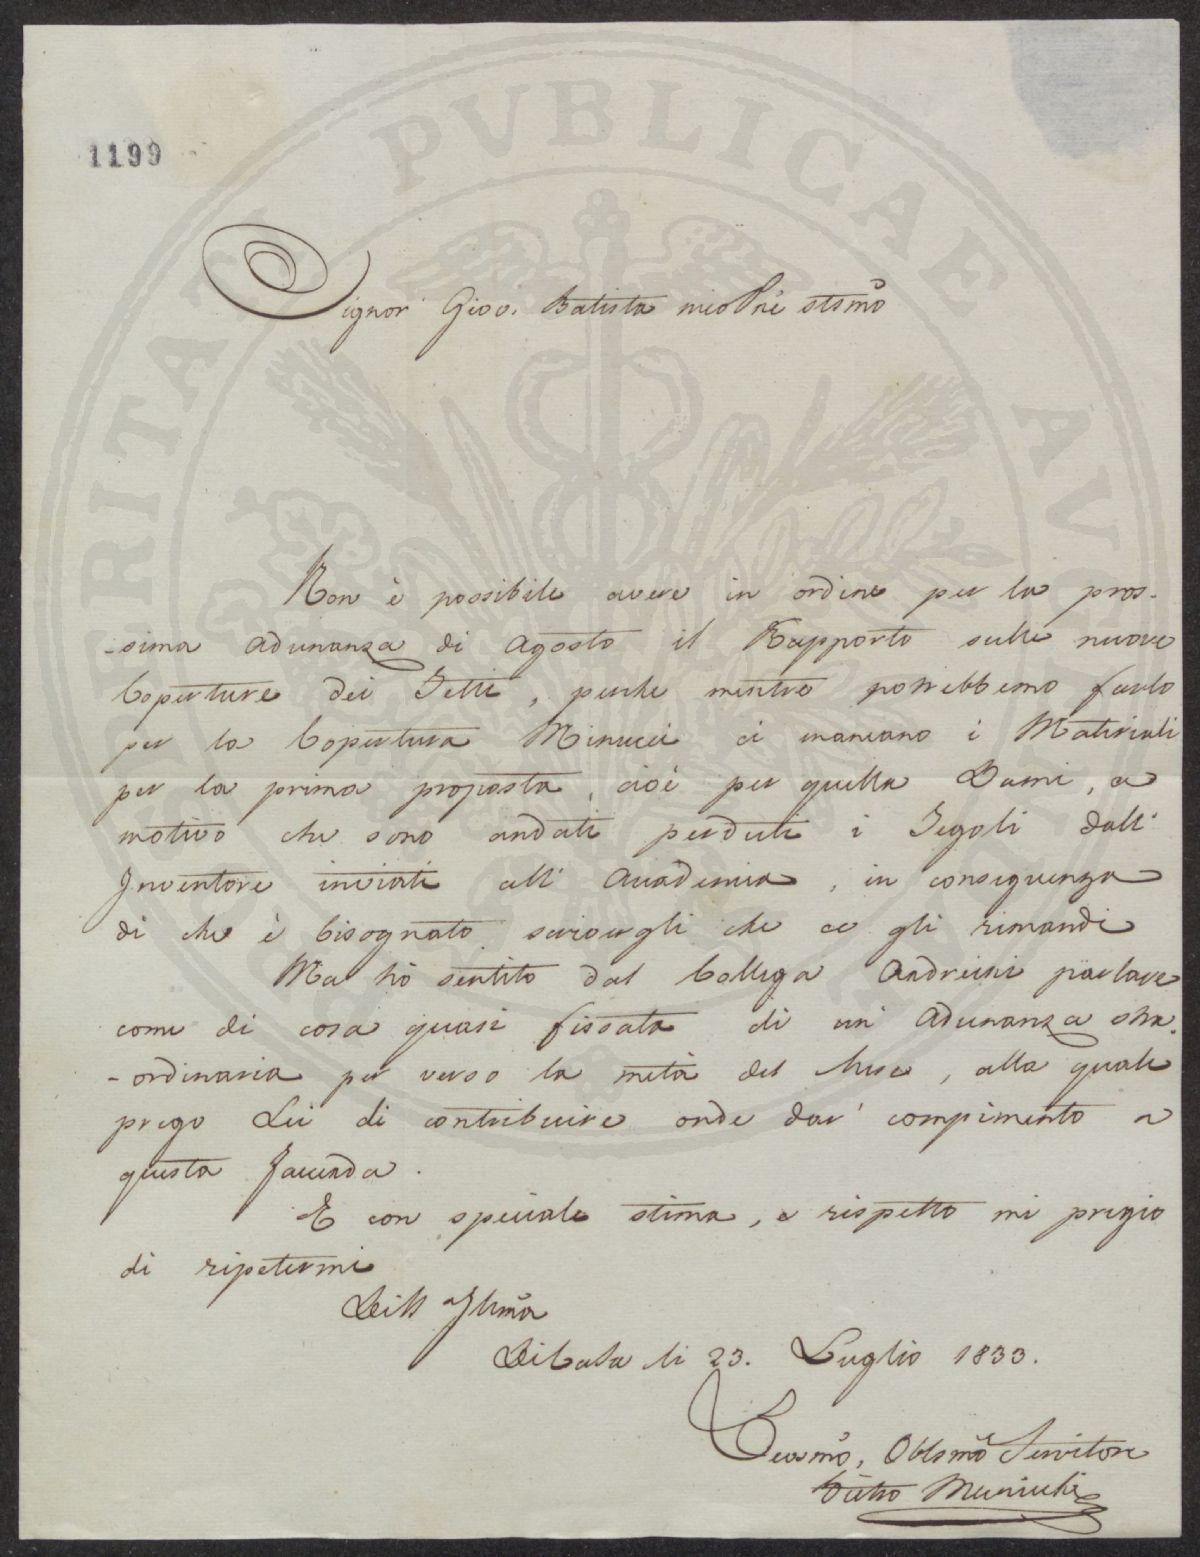 1199
PVBLICAE
Signor Giov. Batista mio Pne Stsmo
Non è possibile avere in ordine per la pros-
-sima adunanza di Agosto il Rapporto sulle nuove
Coperture dei Tetti, perche mentre potrebbemo farlo
per la Copertura Minucci ci mancano i Materiali
per la prima proposta, cioè per quella Dami, a
motivo che sono andati perduti i Tegoli dall'
Inventore inviati all' Accademia, in conseguenza
di che è bisognato scrivergli che ce gli rimandi
Ma hò sentito dal Collega Andreini parlare
come di cosa quasi fissata di un' Adunanza stra-
-ordinaria per verso la metà del Mese, alla quale
prego Lei di contribuire onde dar' compimento a
questa Faccenda.
E con speciale stima, e rispetto mi pregio
di ripetermi
Di VS Illma
Di Casa li 23. Luglio 1833.
Devmo, Obblmo Servitore
Pietro Municchi